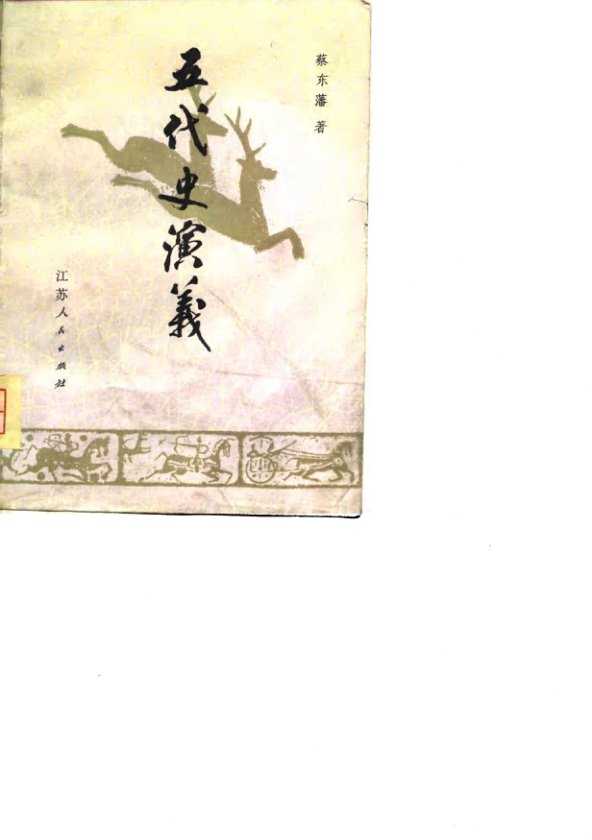 蔡东藩 著
五代史演義
江苏人民出版社